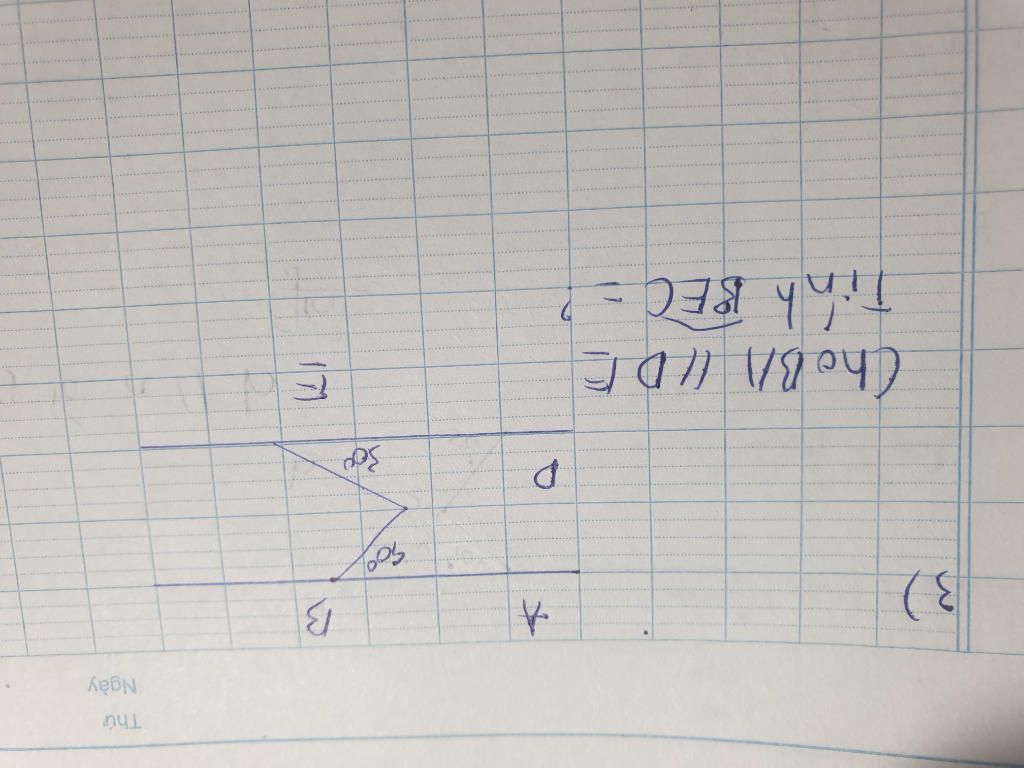 Thứ
Ngày
3)
A B
40°
30°
D
E
Cho BA // DE
Tính BEC = ?